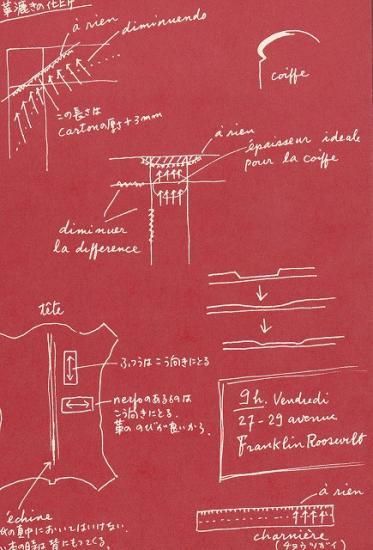 革漉きの仕上げ
à rien
diminuendo
この長さは
cartonの厚さ+3mm
coiffe
à rien
épaisseur ideale
pour la coiffe
diminuer
la difference
tête
ふつうはこう向きにとる
nerfのあるものは
こう向きにとる.
革ののびが良いから.
9h. Vendredi
27-29 avenue
Franklin Roosevelt
échine
の真中においてはいけない.
の時は皆にもってくる.
à rien
charnière